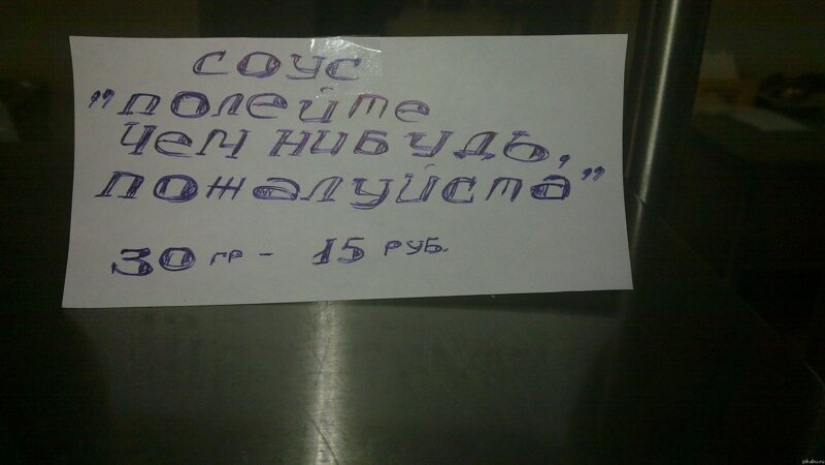 СОУС
"ПОЛЕЙТЕ
ЧЕМ НИБУДЬ,
ПОЖАЛУЙСТА"
30 гр - 15 РУБ.
pikabu.ru